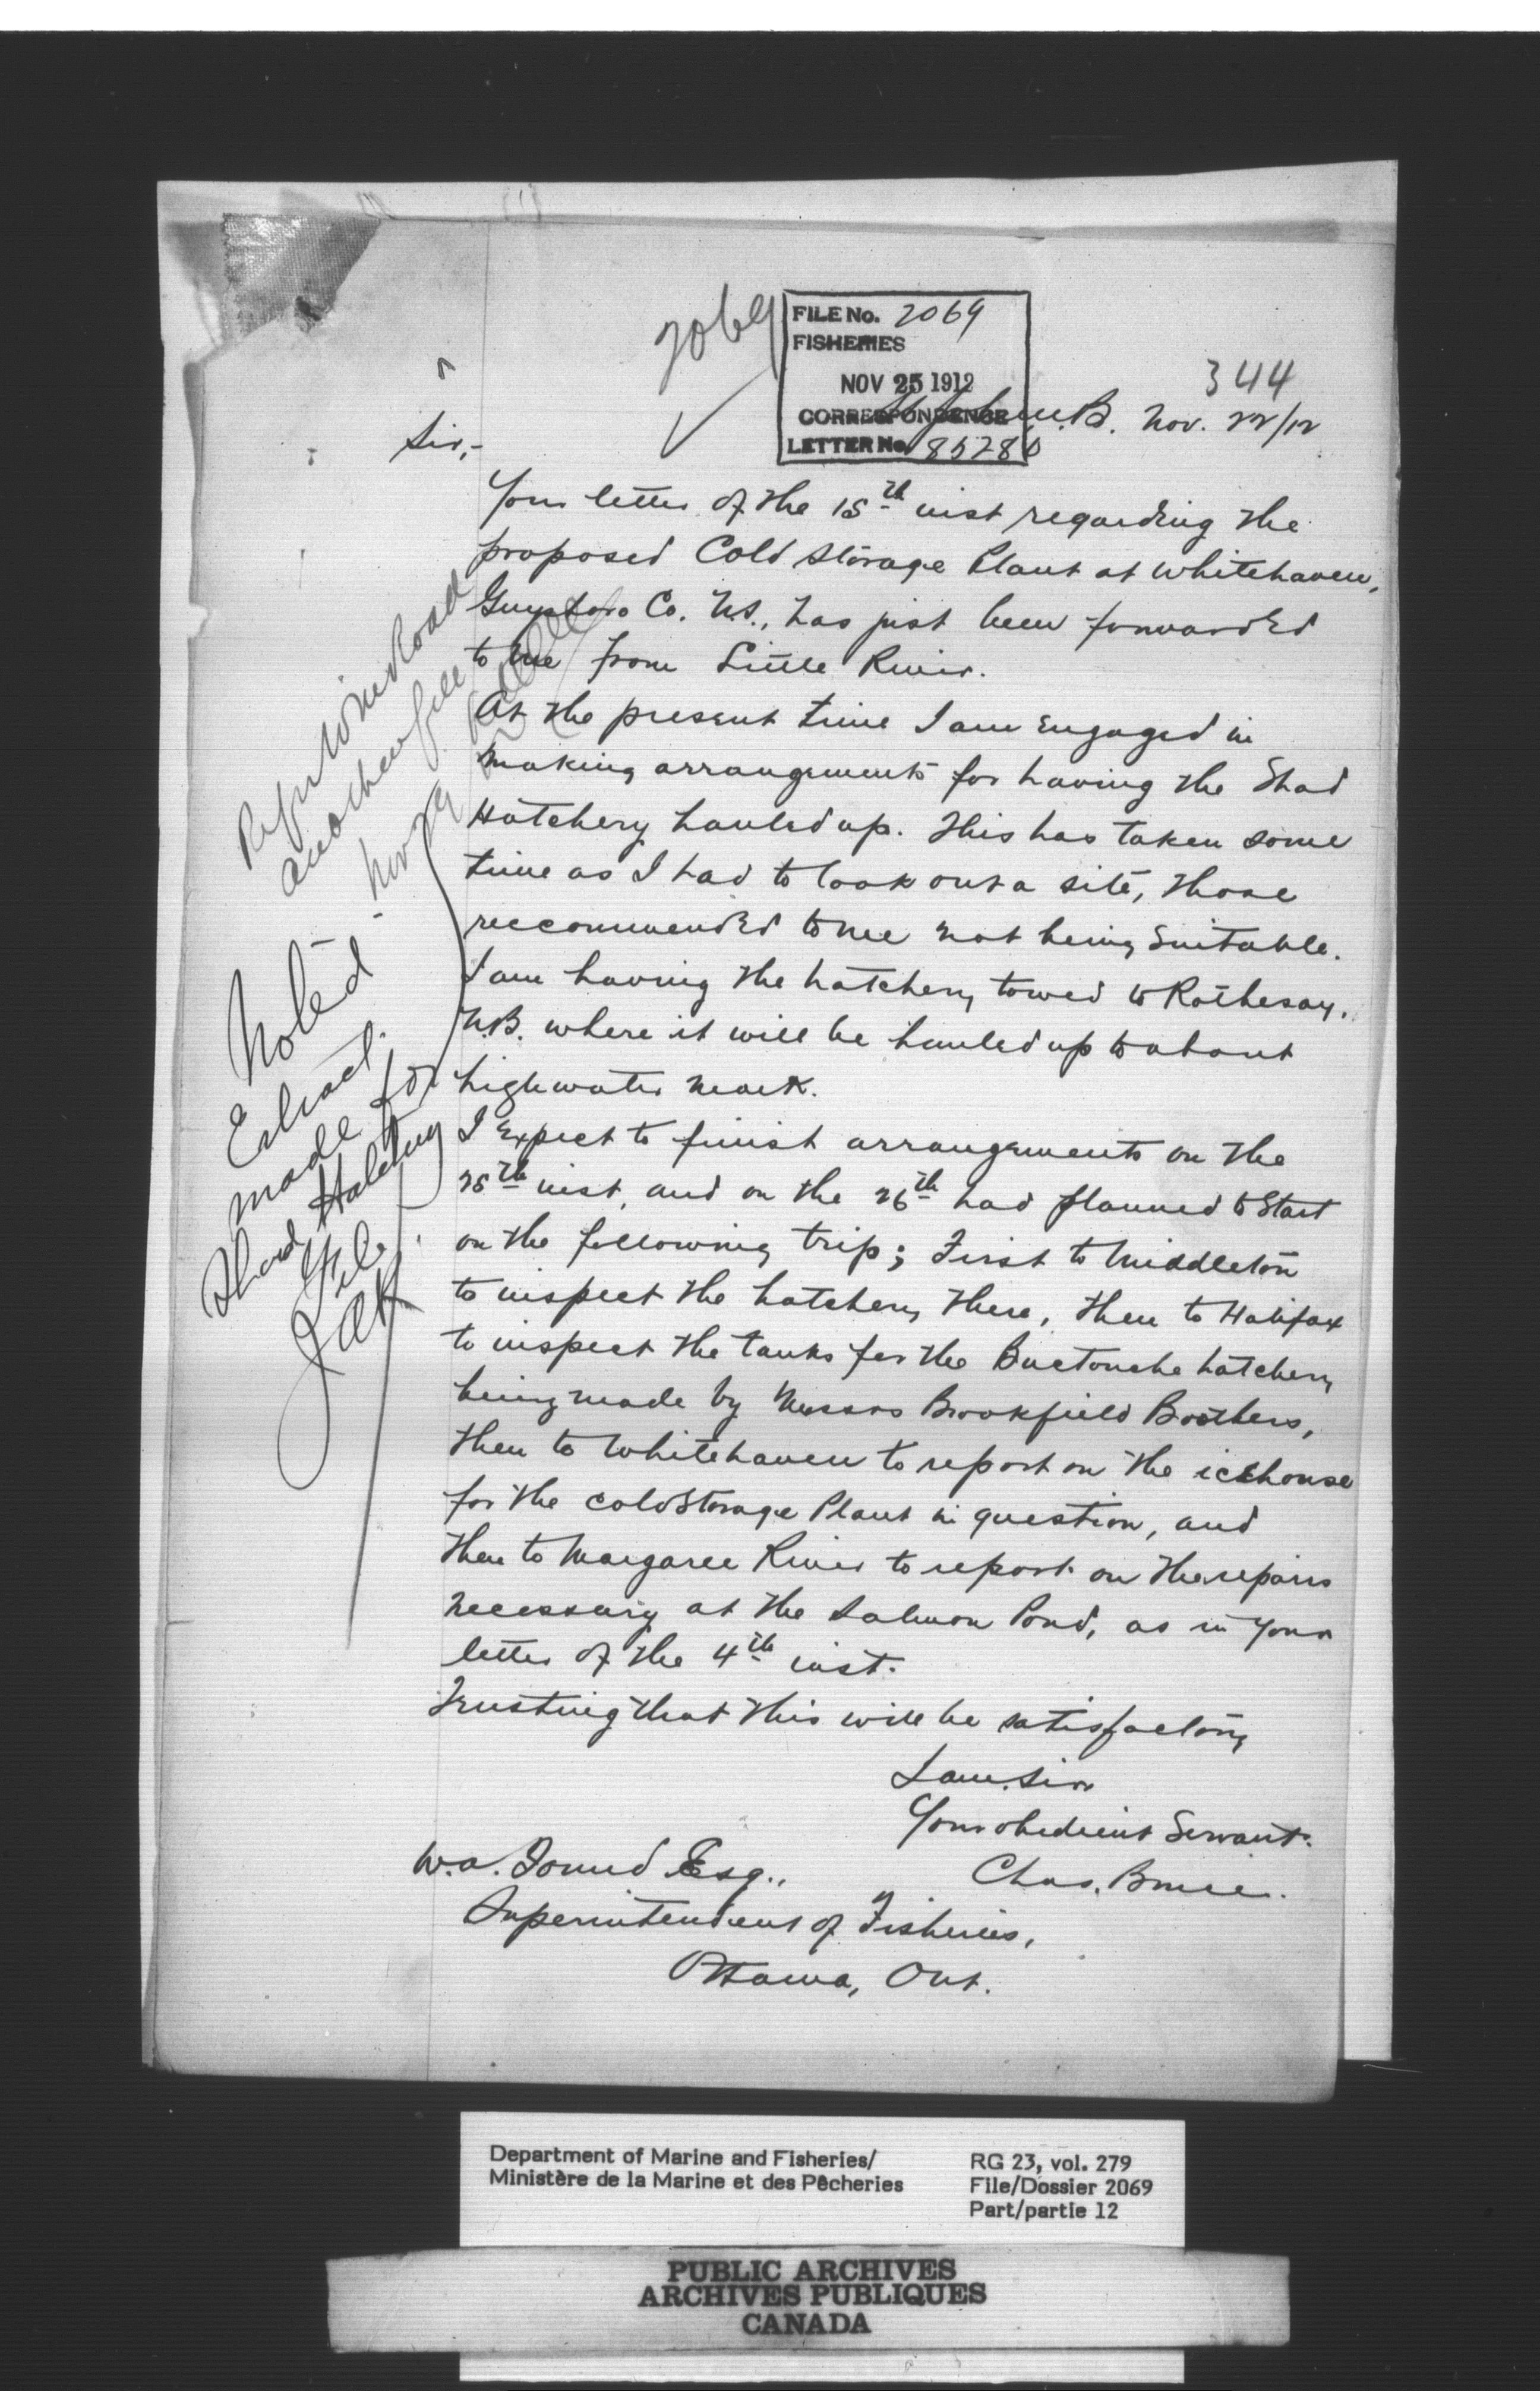 2069
FILE No. 2069
FISHERIES
NOV 25 1912
CORRESPONDENCE
LETTER No. 85280
344
St John N.B. Nov. 22/12
Sir,-
Your letter of the 15th inst regarding the
proposed Cold Storage Plant at Whitehaven,
Guysboro Co. N.S., has just been forwarded
to me from Little River.
At the present time I am engaged in
making arrangements for having the Shad
Hatchery hauled up. This has taken some
time as I had to look out a site, those
recommended to me not being suitable.
I am having the hatchery towed to Rothesay,
N.B. where it will be hauled up to about
high water mark.
I expect to finish arrangements on the
25th inst, and on the 26th had planned to start
on the following trip; First to Middleton
to inspect the hatchery there, then to Halifax
to inspect the tanks for the Buctouche hatchery
being made by Messrs Brookfield Brothers,
then to Whitehaven to report on the icehouse
for the Cold Storage Plant in question, and
then to Margaree River to report on the repairs
necessary at the Salmon Pond, as in your
letter of the 4th inst.
Trusting that this will be satisfactory
I am, Sir
Your obedient Servant.
Chas. Bruce.
W.A. Found Esq.,
Superintendent of Fisheries,
Ottawa, Ont.
on other file
Noted
Extract
made for
Shad Hatching
File
JAK
Department of Marine and Fisheries/
Ministère de la Marine et des Pêcheries
RG 23, vol. 279
File/Dossier 2069
Part/partie 12
PUBLIC ARCHIVES
ARCHIVES PUBLIQUES
CANADA